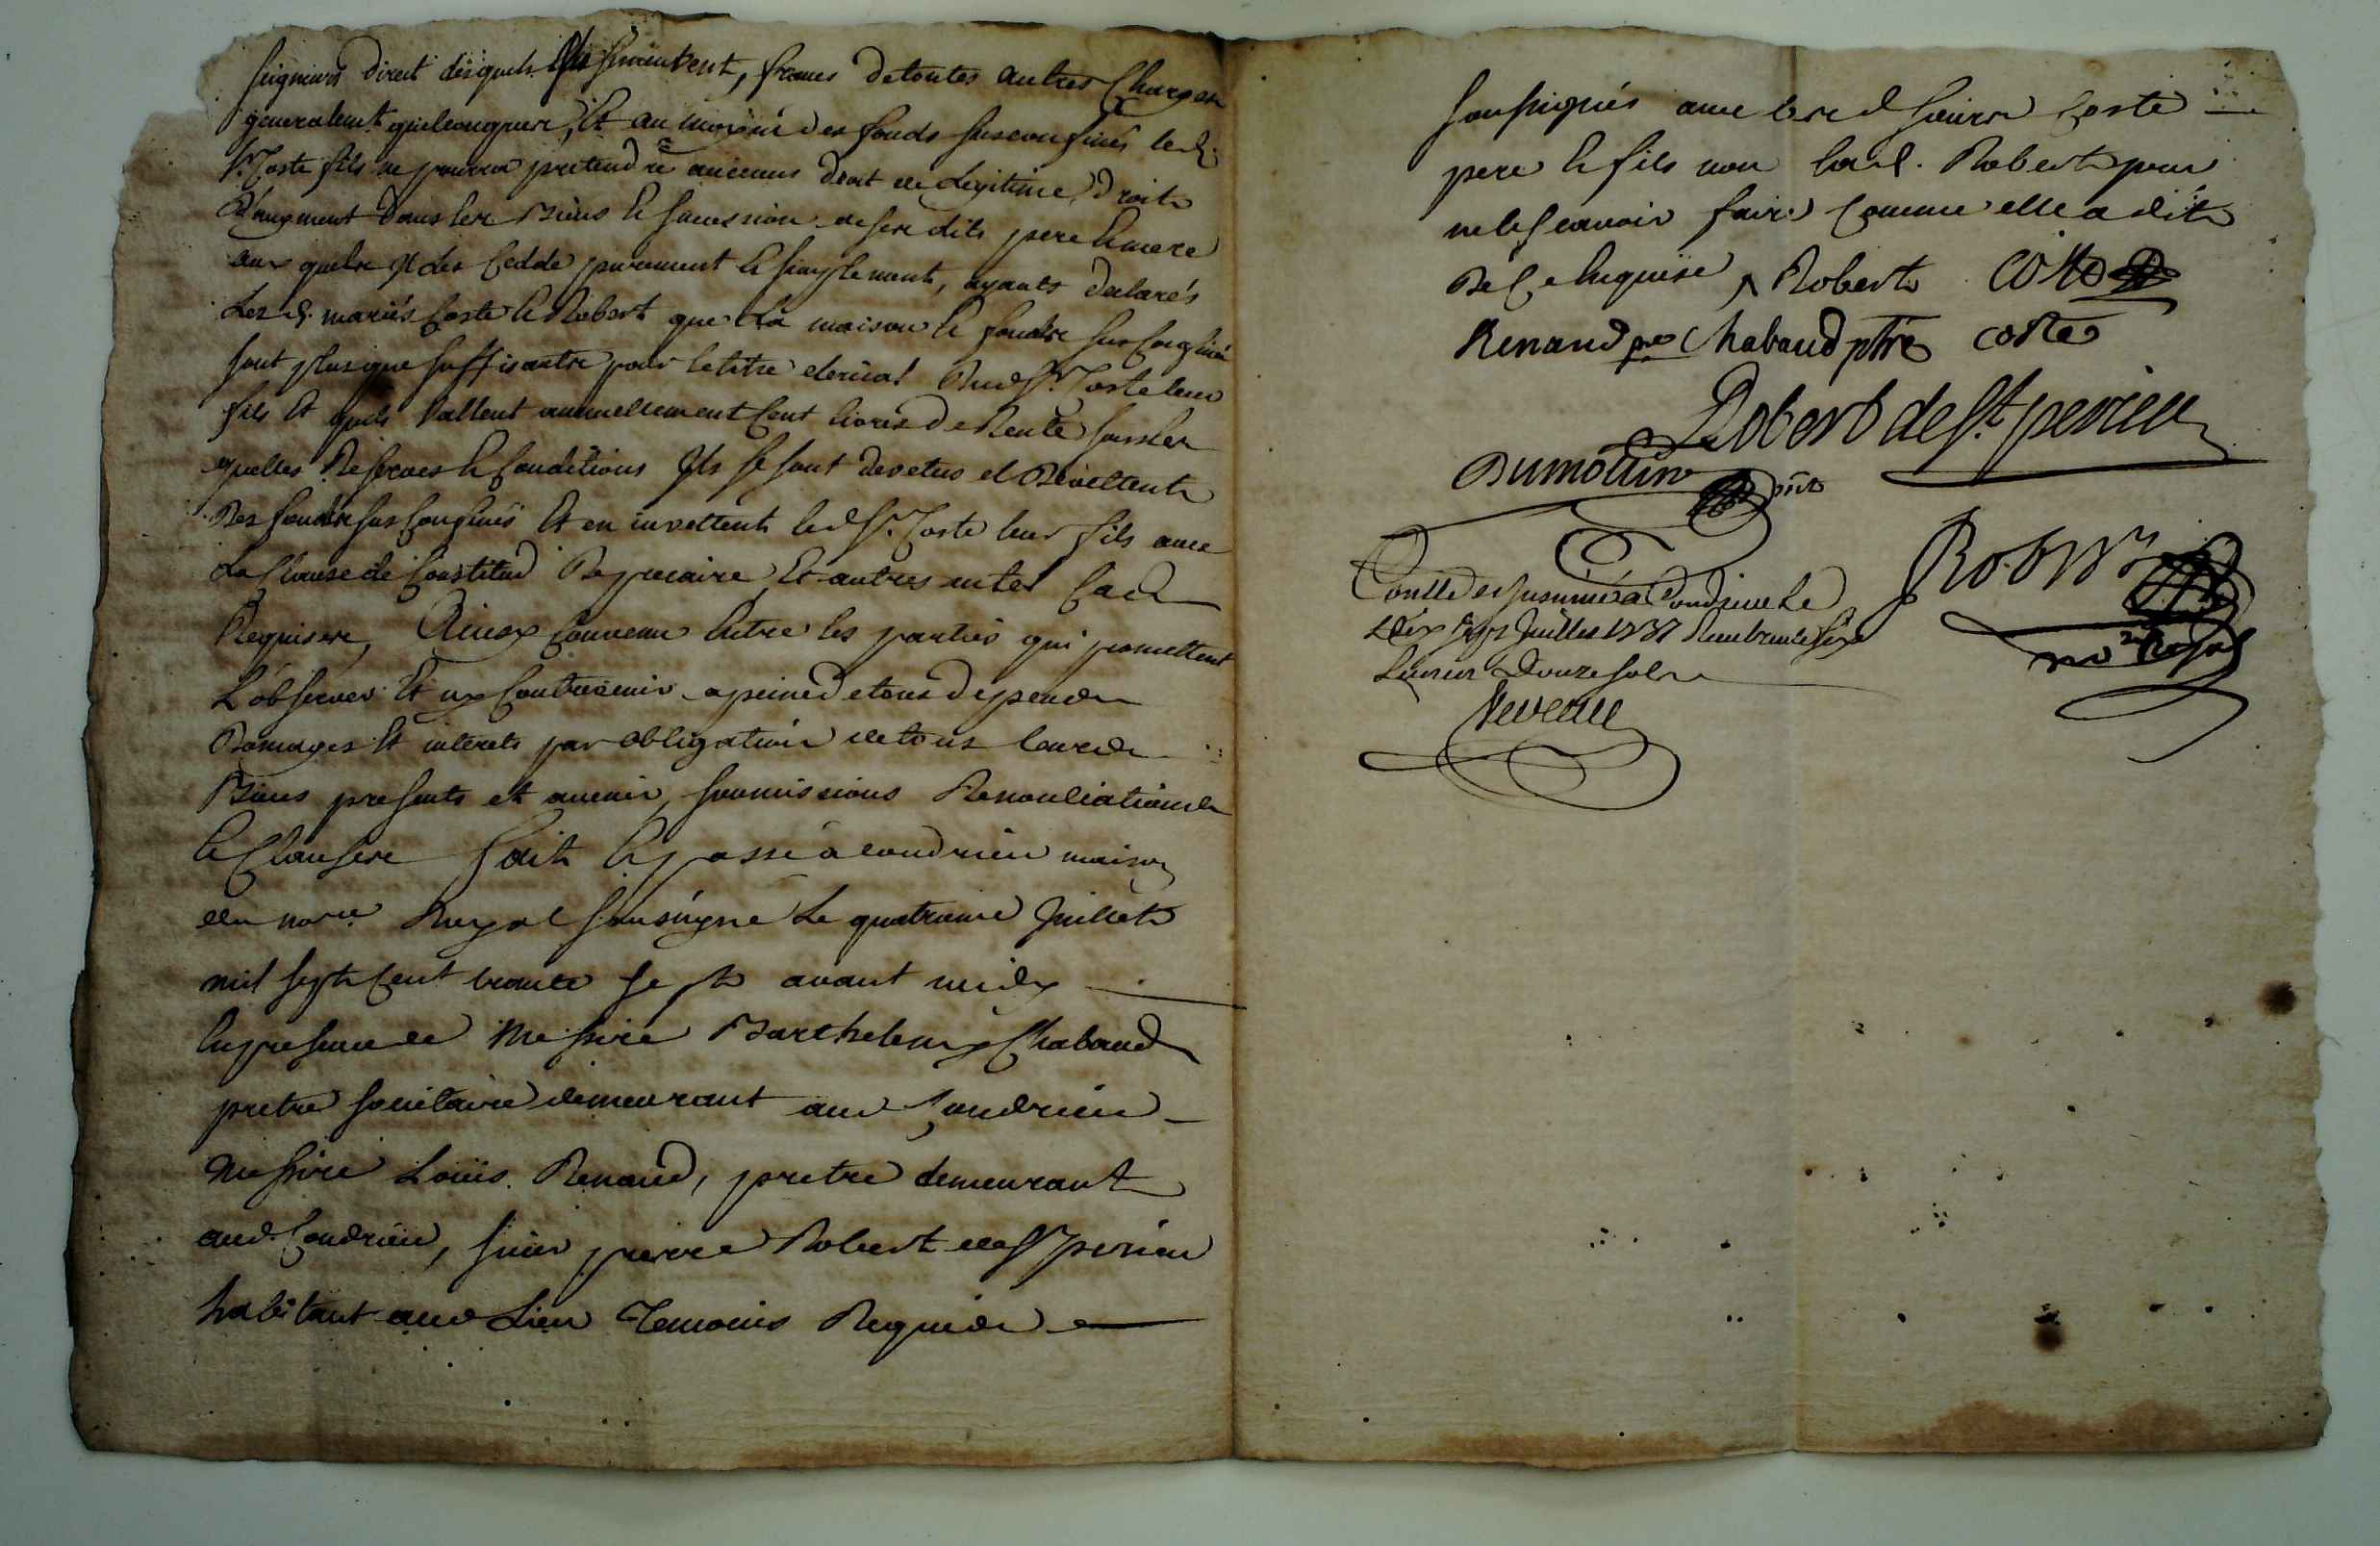 seigneurs direct desquels Ils se meuvent, francs de toutes autres Charges
generalemt. quelconques, Et au moyen des fonds susconfinés led.
Sr. Coste fils ne pourra pretendre aucuns droit de Legitime, droit
D'augment dans les Biens & succession de ses dits pere & mere
aux quels Il les cedde purement & simplement, ayants declarés
Les d. mariés Coste & Robert que la maison & fondes sus confinés
sont plus que suffisants pour le titre clerical dud. Sr. Coste leur
fils Et quils Vallent annuellement Cent livres de Rente sous les
quelles Reserves & Conditions Ils se sont devetus et Devettent
Des fondes sus confinés Et en invettent led. Sr. Coste leur fils avec
La Clause de Constitud Precaire, Et autres en tel Cas
Requises, Ainsy Convenu Entre les parties qui promettent
L'observer Et ny Contrevenir a peine de tous depends
Domages Et interets par obligation de tous leurs
Biens presents et avenir, soumissions Renonciations
& Clauses fait & passé a condrieu maison
du nore. Royal sousigné Le quatrieme Juillet
mil sept Cent trente sept avant midy
En presence de Messire Barthelemy Chabaud
pretre societaire demeurant aud Condrieu
Messire Loüis Renaud, pretre demeurant
aud. Condrieu, sieur pierre Robert de St perieu
habitant aud Lieu Temoins Requis
soussignés avec lesd sieurs Coste
pere & fils non lad. Robert pour
ne le scavoir faire Comme elle a dit
De Ce Enquise, Robert Coste
Renaud pre Chabaud ptre Coste
Robert de St. perieu
Dumoulin
Conllé et Insinué a Condrieu Le
Dix sept Juillet 1737 Receu trente six
Livres Douze sols
Robert
no. Royal